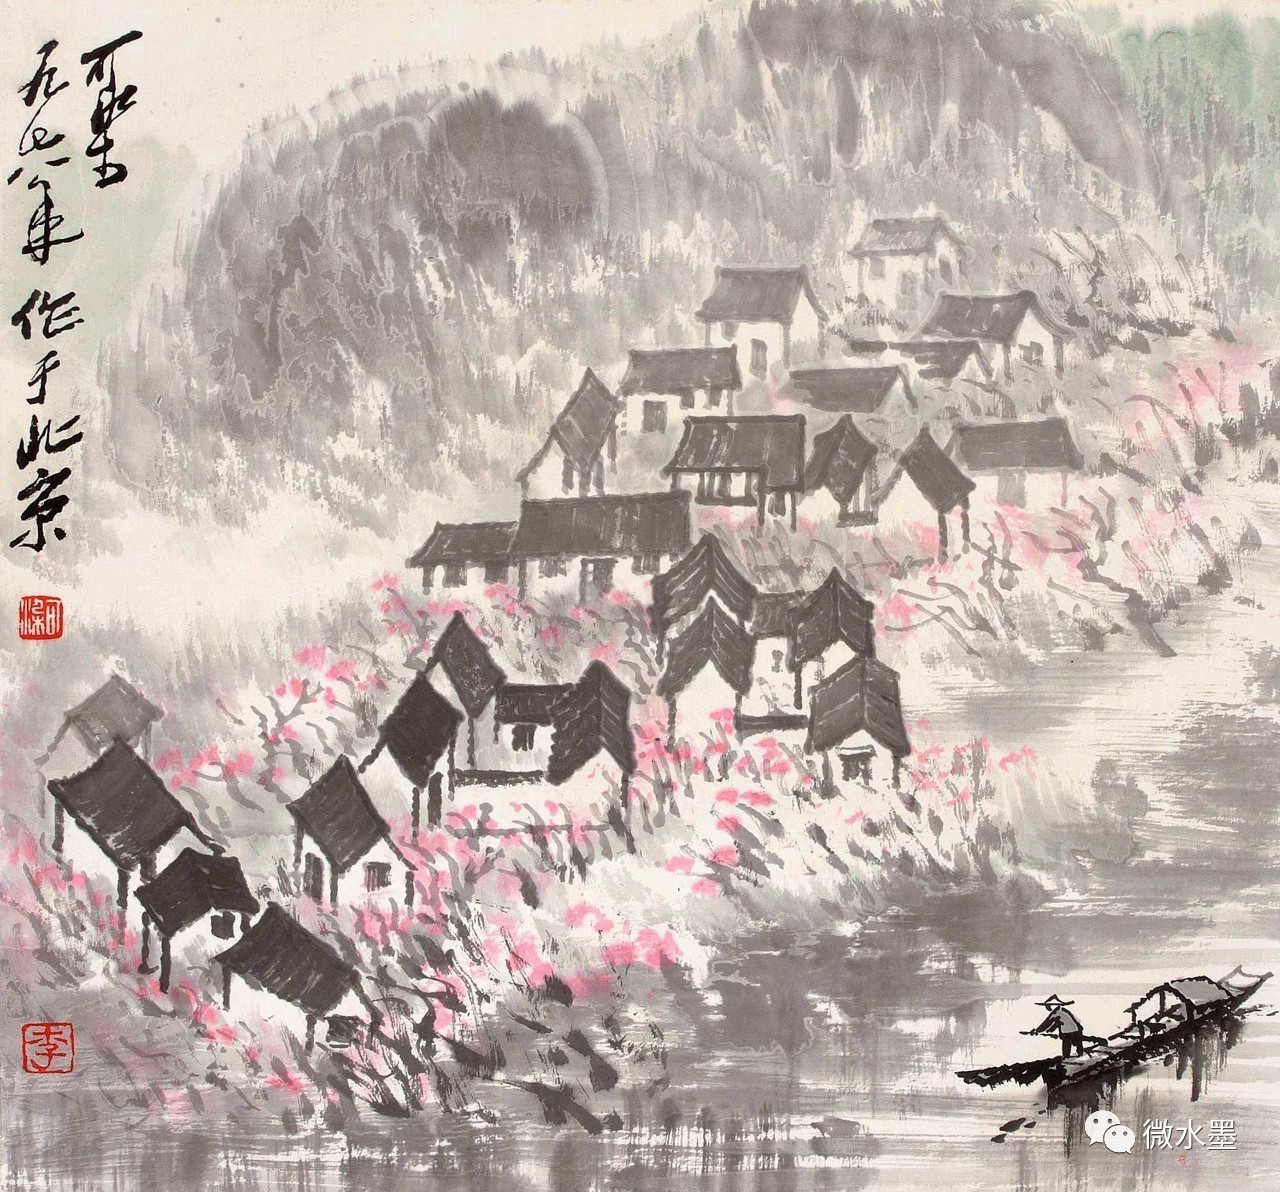 可染
一九七八年 作于北京
可染
李
微水墨